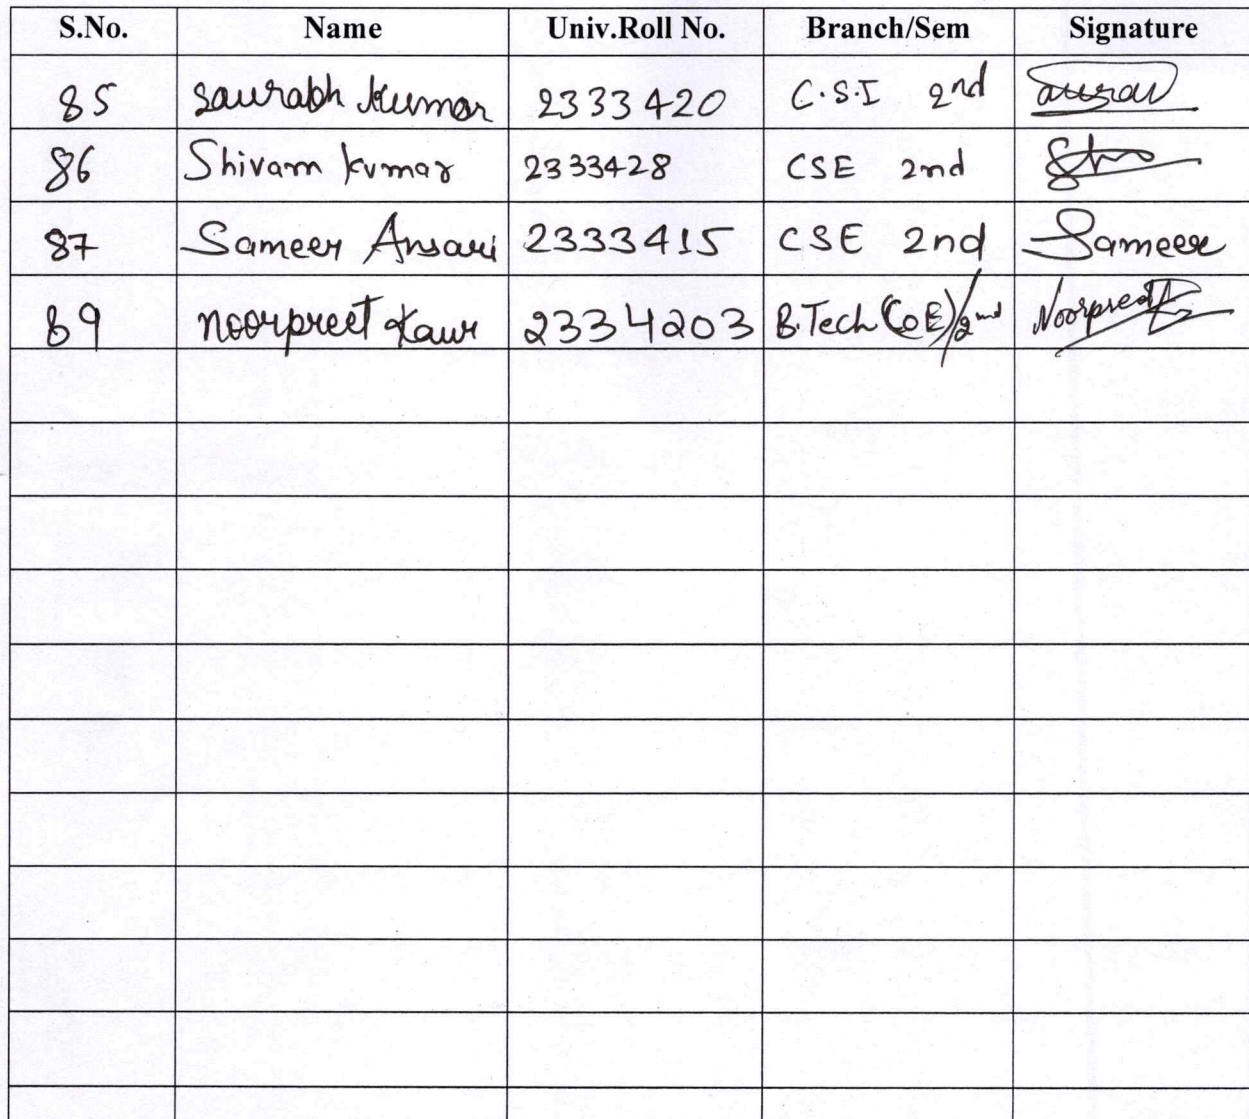 S.No. Name Univ.Roll No. Branch/Sem Signature
85 Saurabh Kumar 2333420 C.S.I 2nd
86 Shivam Kumar 2333428 CSE 2nd
87 Sameer Ansari 2333415 CSE 2nd Sameer
89 Noorpreet Kaur 2334203 B.Tech (CoE)/2nd Noorpreet